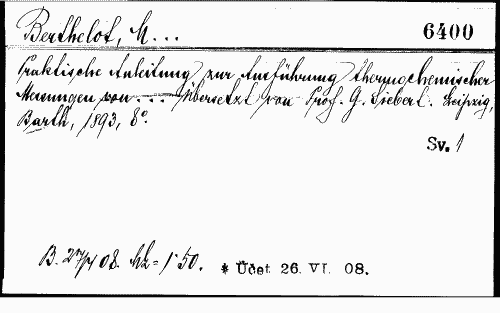 Berthelot, M... 6400
Praktische Anleitung zur Ausführung thermochemischer
Messungen von ... Übersetzt von Prof. G. Siebert. Leipzig,
Barth, 1893, 8°.
Sv. 1
B. 27/4 08. Mk = 1·50. * Účet 26. VI. 08.